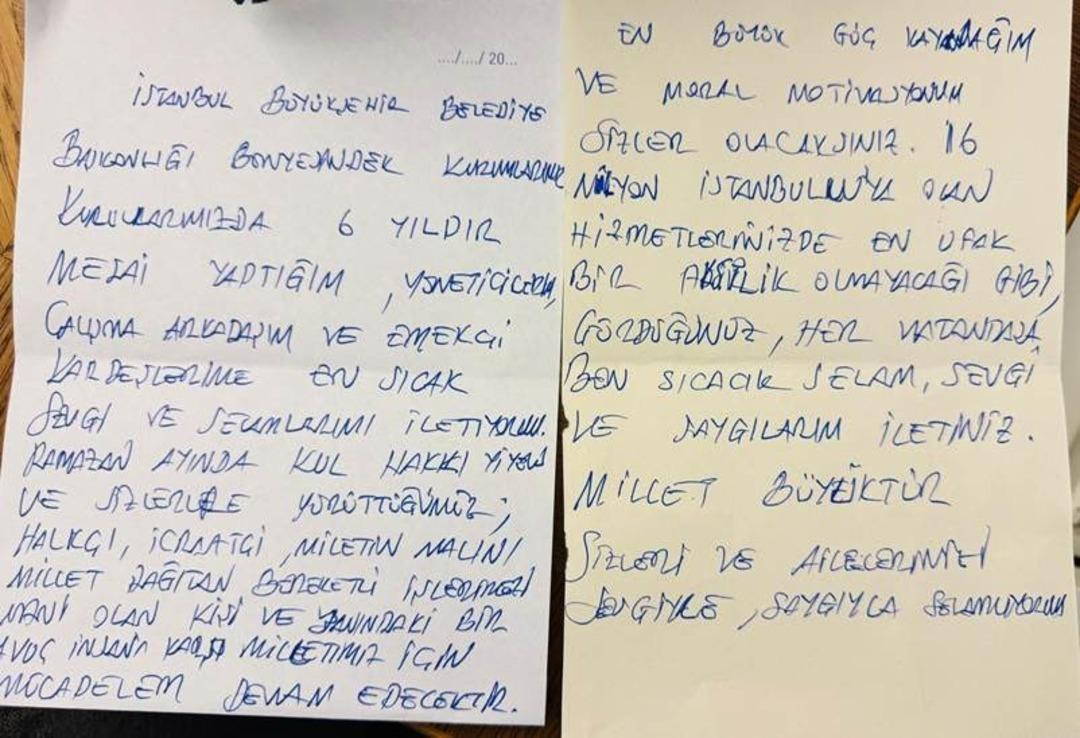 ..../..../ 20...
İSTANBUL BÜYÜKŞEHİR BELEDİYE
BAŞKANLIĞI BÜNYESİNDEK KURUMLARIMIZ
KURULLARIMIZDA 6 YILDIR
MESAİ YAPTIĞIM , YÖNETİCİLERİM,
ÇALIŞMA ARKADAŞIM VE EMEKÇİ
KARDEŞLERİME EN SICAK
SEVGİ VE SELAMLARIMI İLETİYORUM.
RAMAZAN AYINDA KUL HAKKI YİYEN
VE SİZLERLE YÜRÜTTÜĞÜMÜZ ;
HALKÇI, İCRAATÇI , MİLETİN MALINI
MİLLET DAĞITAN BEREKETLİ İŞLERİMİZİ
MANİ OLAN KİŞİ VE YANINDAKİ BİR
AVUÇ İNSANA KARŞI MİLLETİMİZ İÇİN
MÜCADELEM DEVAM EDECEKTİR.
EN BÜYÜK GÜÇ KAYNAĞIM
VE MORAL MOTİVASYONUM
SİZLER OLACAKSINIZ. 16
MİLYON İSTANBULLU'YA OLAN
HİZMETLERİNİZDE EN UFAK
BİR AKSİLİK OLMAYACAĞI GİBİ,
GÖRDÜĞÜNÜZ , HER VATANDAŞA
BEN SICACIK SELAM, SEVGİ
VE SAYGILARIM İLETİNİZ .
MİLLET BÜYÜKTÜR
SİZLERİ VE AİLELERİNİZİ
SEVGİYLE , SAYGIYLA SELAMLIYORUM